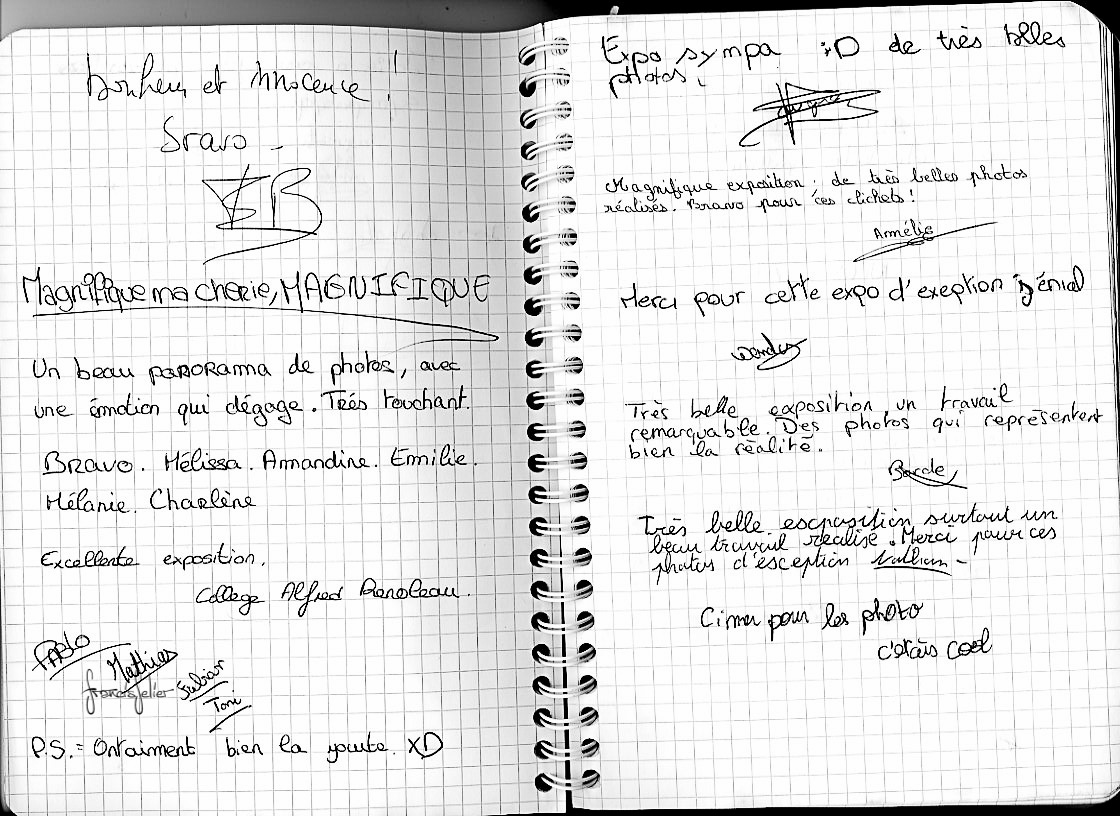 Bonheur et Innocence !
Bravo -
Magnifique ma cherie, MAGNIFIQUE
Un beau panorama de photos, avec
une émotion qui dégage. Trés touchant.
Bravo. Mélissa. Amandine. Emilie.
Mélanie. Charlène
Excellente exposition.
College Alfred Renoleau.
PABLO
Mathies
francis selier
Fabian
Toni
P.S. = Ontaiment bien la yourte. XD
Expo sympa :D de très belles
photos.
Magnifique exposition. de très belles photos
réalisés. Bravo pour ces clichets !
Armélie
Merci pour cette expo d'exeption génial
Très belle exposition un travail
remarquable. Des photos qui représentent
bien la réalité.
Barde
Très belle escposition surtout un
beau travail réalisé. Merci pour ces
photos d'esception Nathan -
Cimer pour les photo
c'étais cool